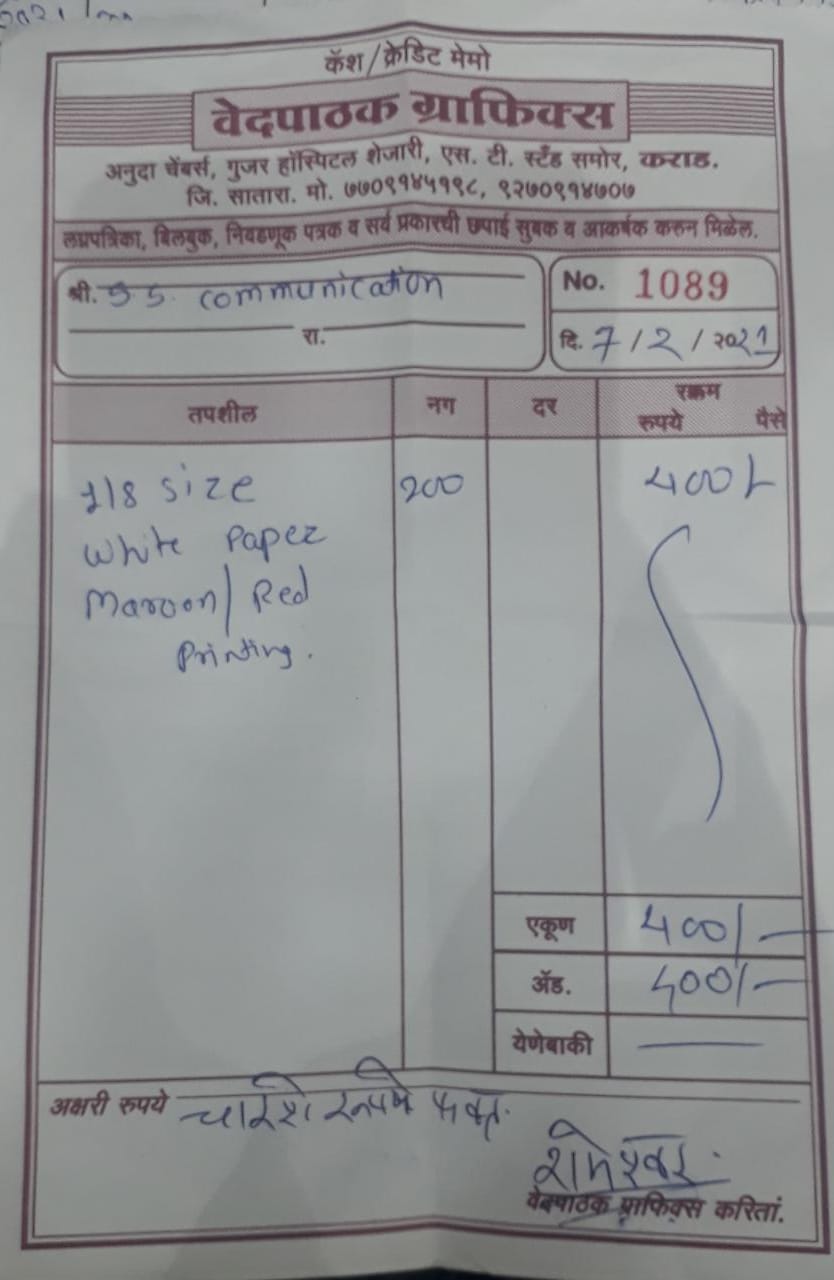 कॅश/क्रेडिट मेमो
वेदपाठक ग्राफिक्स
अनुदा चेंबर्स, गुजर हॉस्पिटल शेजारी, एस. टी. स्टँड समोर, कराड.
जि. सातारा. मो. ७७०९१४५११८, ९२७०९१४७०७
लग्नपत्रिका, बिलबुक, निवडणूक पत्रक व सर्व प्रकारची छपाई सुबक व आकर्षक करुन मिळेल.
श्री. S.S. Communication
No. 1089
रा.
दि. 7/2/२०21
तपशील नग दर रक्कम
रुपये पैसे
1/8 Size 200 400/-
White Paper
Maroon/Red
Printing.
एकूण 400/-
ॲड. 400/-
येणेबाकी
अक्षरी रुपये चारशे रुपये फक्त.
वेदपाठक ग्राफिक्स करितां.